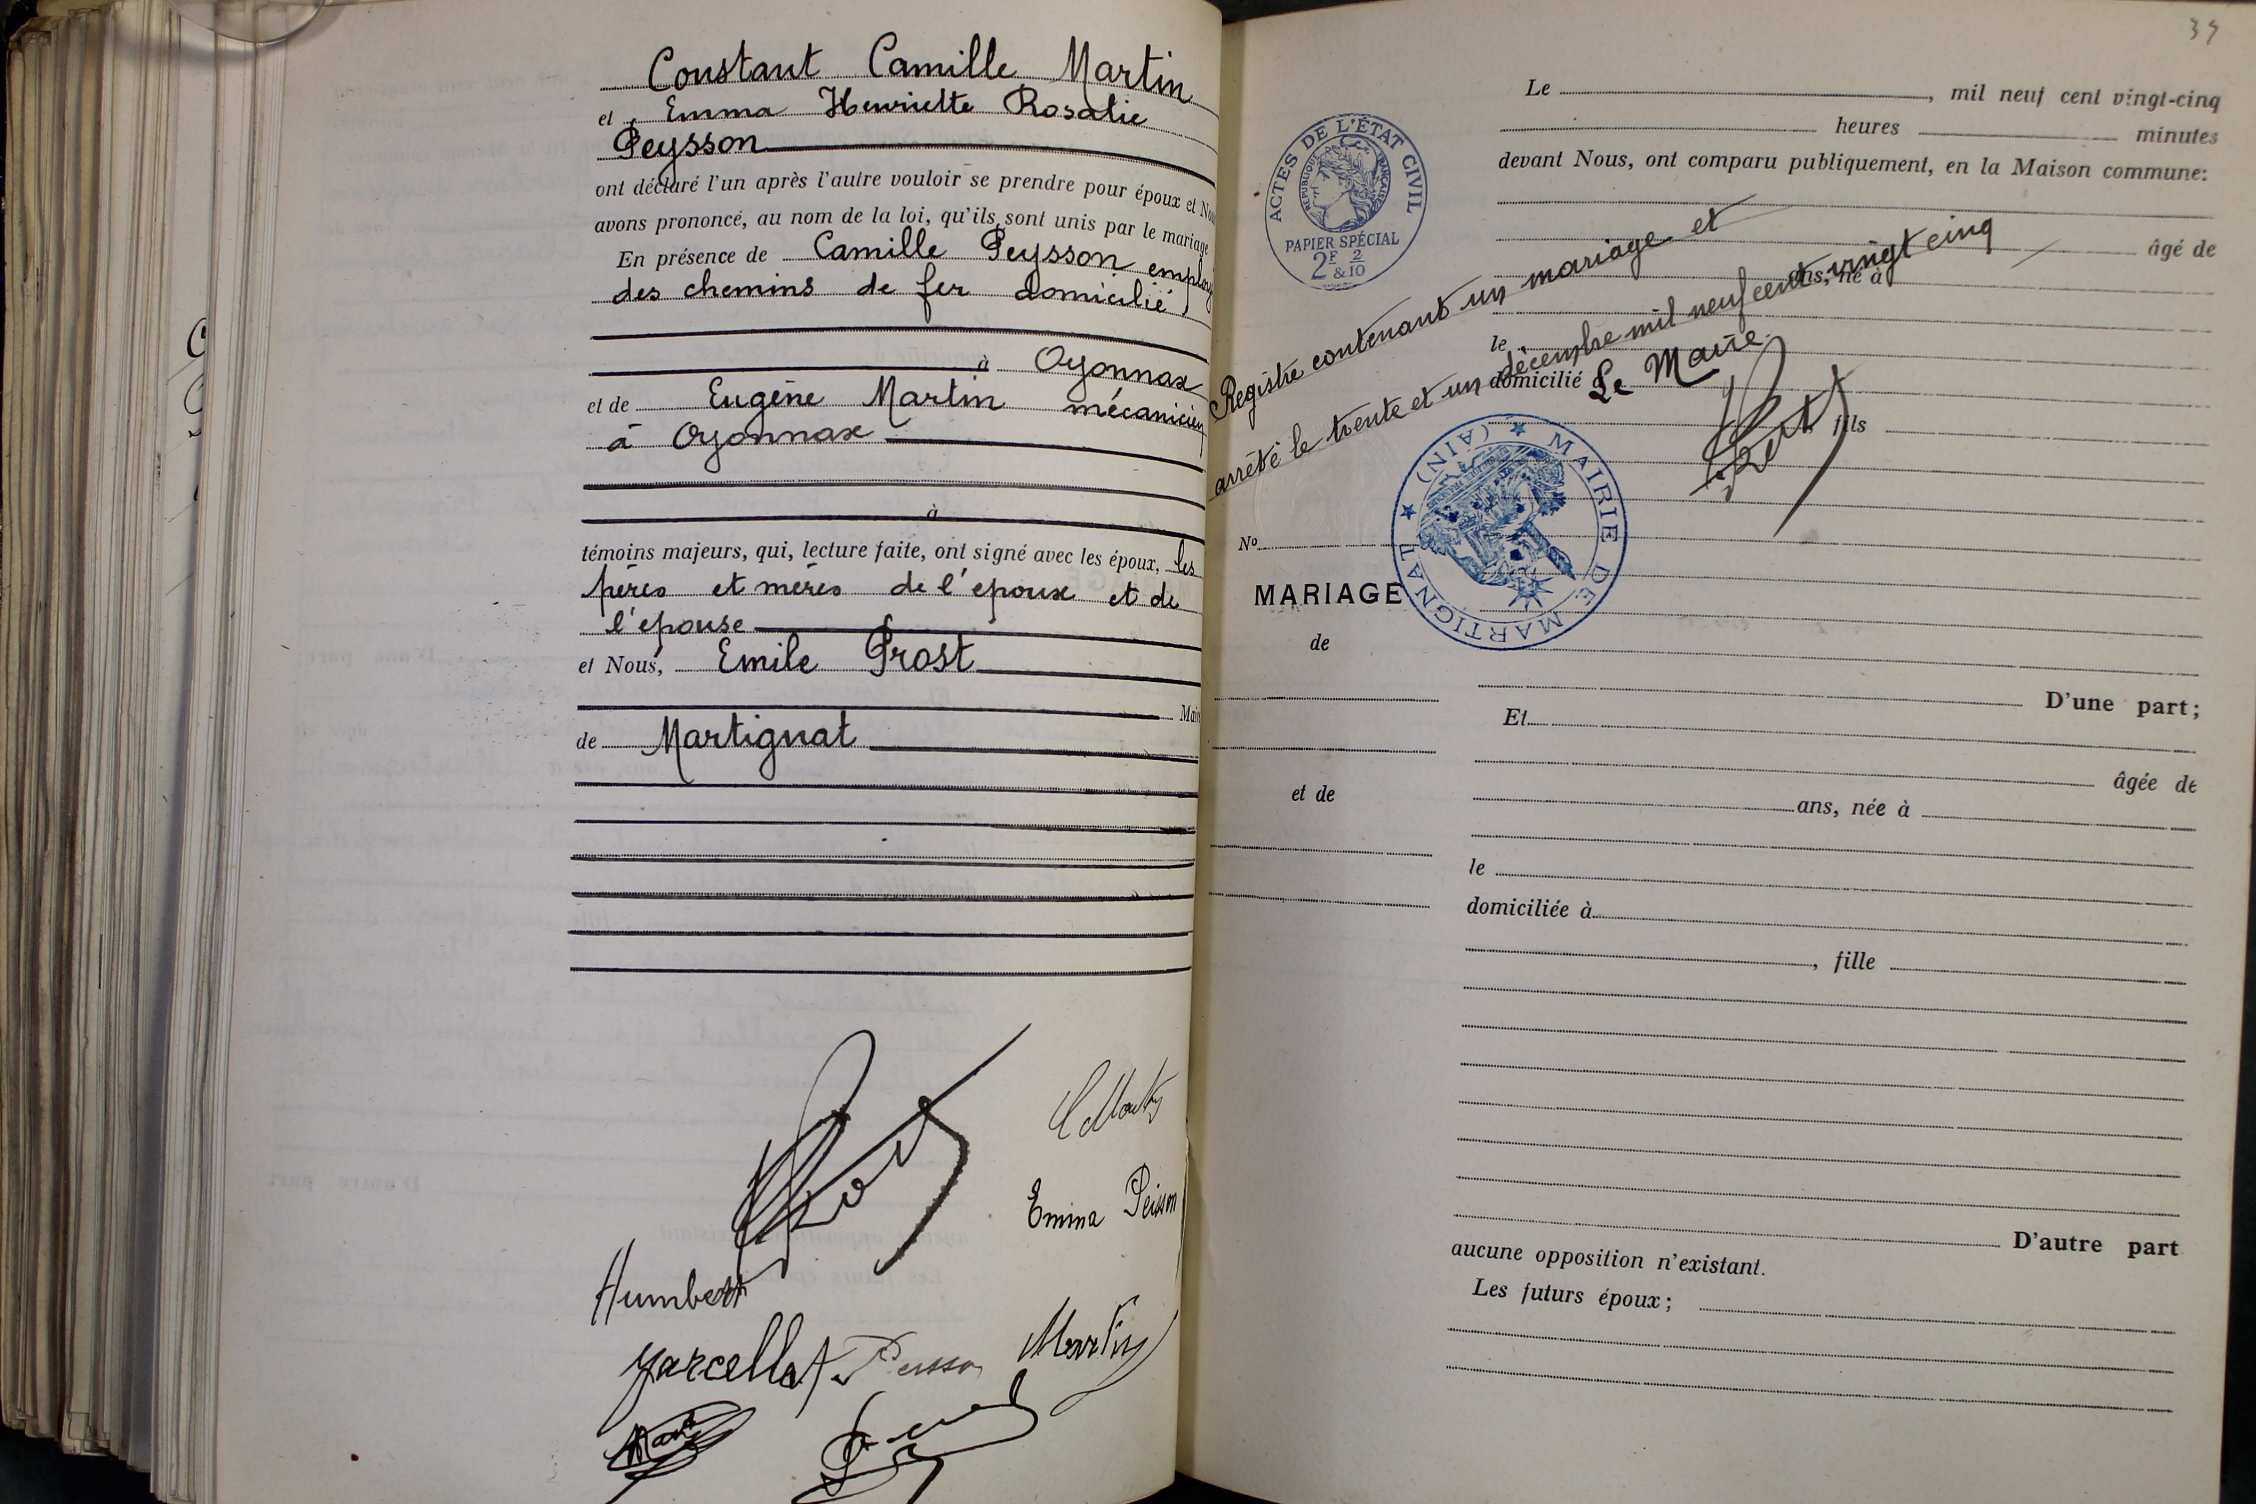 Constant Camille Martin
et Emma Henriette Rosalie
Peysson
ont déclaré l'un après l'autre vouloir se prendre pour époux et Nous
avons prononcé, au nom de la loi, qu'ils sont unis par le mariage
En présence de Camille Peysson employé
des chemins de fer domicilié
à Oyonnax
et de Eugène Martin mécanicien
à Oyonnax
à
témoins majeurs, qui, lecture faite, ont signé avec les époux, les
pères et mères de l'époux et de
l'épouse
et Nous, Emile Prost
Maire
de Martignat
Emma Peisson
Humbert
Marcellat
Martin
39
ACTES DE L'ÉTAT CIVIL
RÉPUBLIQUE FRANÇAISE
PAPIER SPÉCIAL
2F 2
&10
Le , mil neuf cent vingt-cinq
heures minutes
devant Nous, ont comparu publiquement, en la Maison commune:
âgé de
ans, né à
le
domicilié à
fils
Registre contenant un mariage et
arrêté le trente et un décembre mil neuf cent vingt cinq
Le Maire
MAIRIE DE MARTIGNAT (AIN)
No
MARIAGE
de
et de
D'une part;
Et
âgée de
ans, née à
le
domiciliée à
, fille
D'autre part
aucune opposition n'existant.
Les futurs époux;